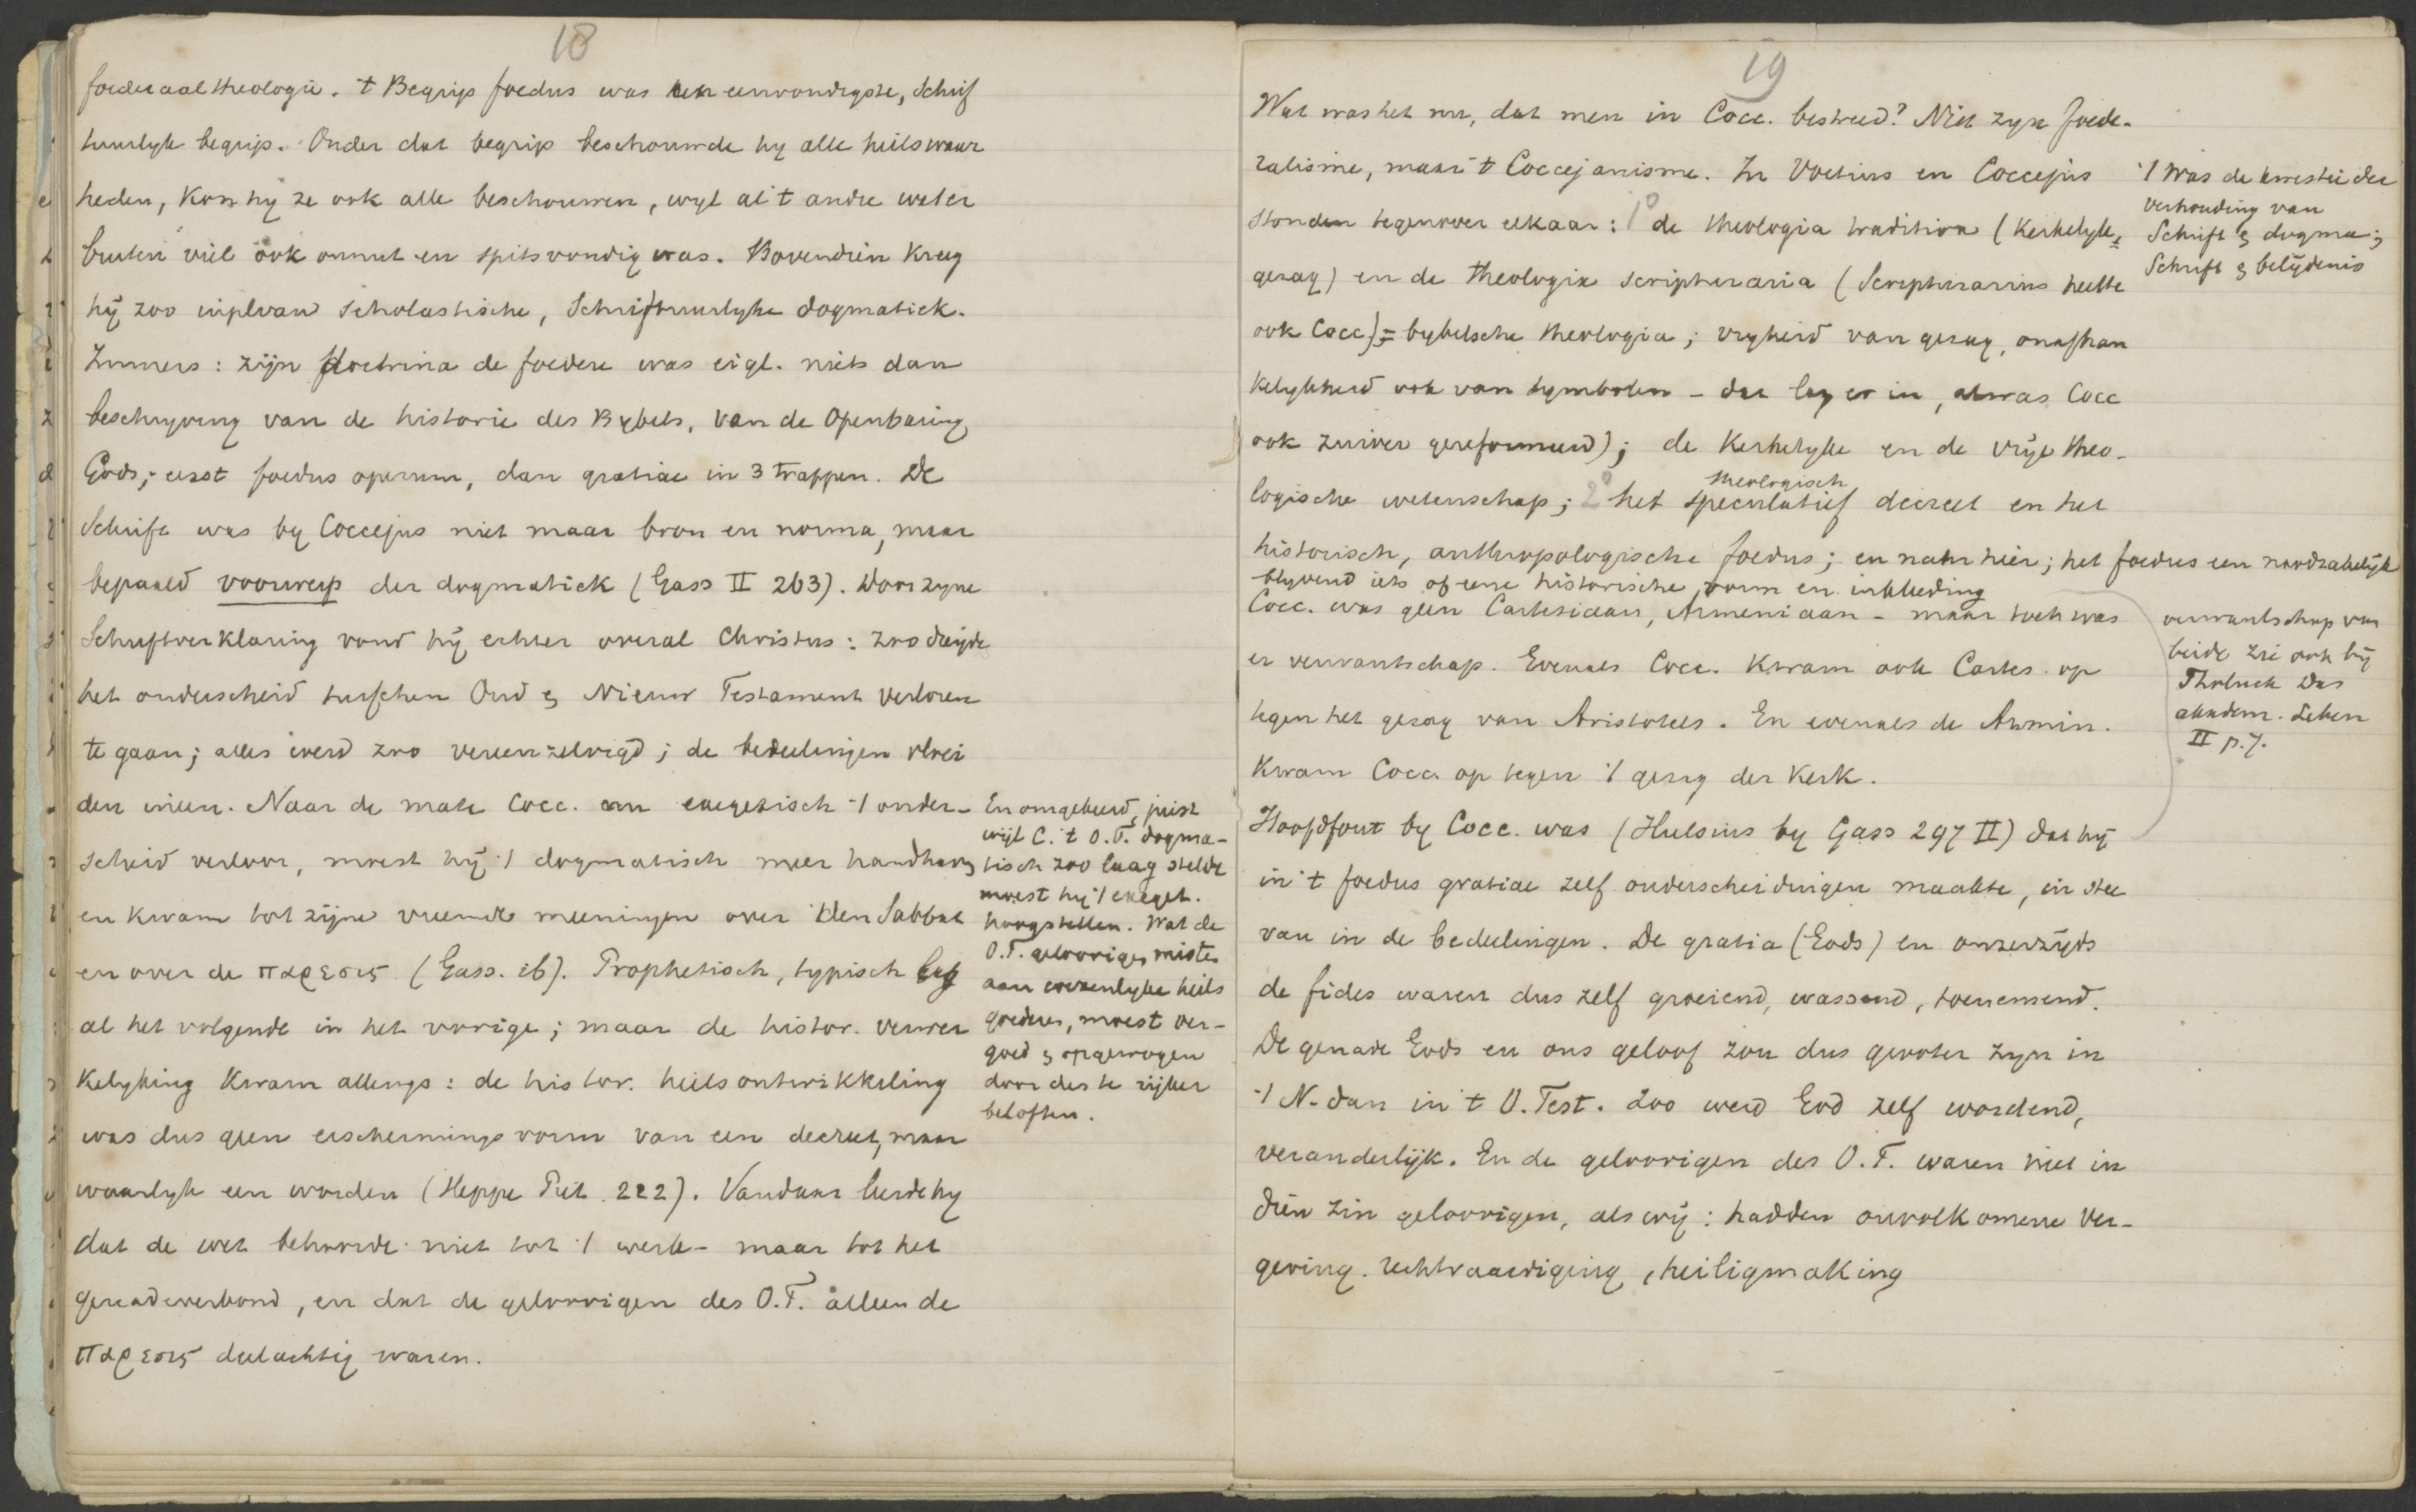 18
foederaaltheologie. 't Begrip foedus was een eenvoudigste, Schrif
tuurlyk begrip. Onder dat begrip beschouwde hy alle heilswaar
heden, kon hy ze ook alle beschouwen, wyl al 't andre wat er
buiten viel ook onnut en spitsvondig was. Bovendien kreeg
hij zoo in plaats van Scholastische, Schriftuurlyke dogmatiek.
Immers: zijn doctrina de foedere was eigl. niets dan
beschryving van de historie des Bybels, van de Openbaring
Gods; eerst foedus operum, dan gratiae in 3 trappen. De
Schrift was by Coccejus niet maar bron en norma, maar
bepaald voorwerp der dogmatiek (Gass II 263). Door zyne
Schriftverklaring vond hij echter overal Christus: zoo dreigde
het onderscheid tusschen Oud & Nieuw Testament verloren
te gaan; alles werd zoo vereenzelvigd; de bedeelingen vloei
den ineen. Naar de mate Cocc. exegetisch 't onder-
scheid verloor, moest hij 't dogmatisch meer handhaven
en kwam tot zijne vreemde meeningen over den Sabbat
en over de παρεσις (Gass. ib). Prophetisch, typisch lag
al het volgende in het vorige; maar de histor. verwer
kelyking kwam allengs: de histor. heilsontwikkeling
was dus geen verschermings vorm van een decreet, maar
waarlyk een worden (Heppe Piet. 222). Vandaar leerde hy
dat de wet behoorde niet tot 't werk- maar tot het
genadeverbond, en dat de geloovigen des O.T. alleen de
παρεσις deelachtig waren.
En omgekeerd, juist
wijl C. 't O.T. dogma-
tisch zoo laag stelde
moest hij 't exeget.
hoog stellen. Wat de
O.T. geloovigen misten
aan wezenlyke heils
goederen, moest ver-
goed & opgewogen
door des te rijker
beloften.
19
Wat was het nu, dat men in Cocc. bestreed? Niet zyn foede-
ralisme, maar 't Coccejanisme. In Voetius en Coccejus
stonden tegenover elkaar: 1° de theologia traditiva (kerkelyk,
gezag) en de theologia scripturaria (Scripturarius heette
ook Cocc) = bybelsche theologia; vryheid van gezag, onafhan
kelykheid ook van symbolen - dat lag er in, al was Cocc
ook zuiver gereformeerd); de kerkelyke en de vrije theo-
logische wetenschap; 2° het speculatief theologisch decreet en het
historisch, anthropologische foedus; en nah hier; het foedus een noodzakelijk
blyvend iets of eene historische vorm en inkleeding
Cocc. was geen Cartesiaan, Armeniaan - maar toch was
er verwantschap. Evenals Cocc. kwam ook Cartes. op
tegen het gezag van Aristoteles. En evenals de Armin.
kwam Cocc. op tegen 't gezag der Kerk.
Hoofdfout by Cocc. was (Hulsius by Gass 297 II) dat hij
in 't foedus gratiae zelf onderscheidingen maakte, in stee
van in de bedeelingen. De gratia (Gods) en onzerzijds
de fides waren dus zelf groeiend, wassend, toenemend.
De genade Gods en ons geloof zou dus grooter zyn in
't N. dan in 't O. Test. Zoo werd God zelf wordend,
veranderlijk. En de geloovigen des O.T. waren niet in
dien zin geloovigen, als wij: hadden onvolkomene ver-
geving. rechtvaardiging, heiligmaking
't Was de kwestie der
verhouding van
Schrift & dogma;
Schrift & belijdenis
verwantschap van
beide zie ook bij
Tholuck Das
akadem. Leben
II p. 7.